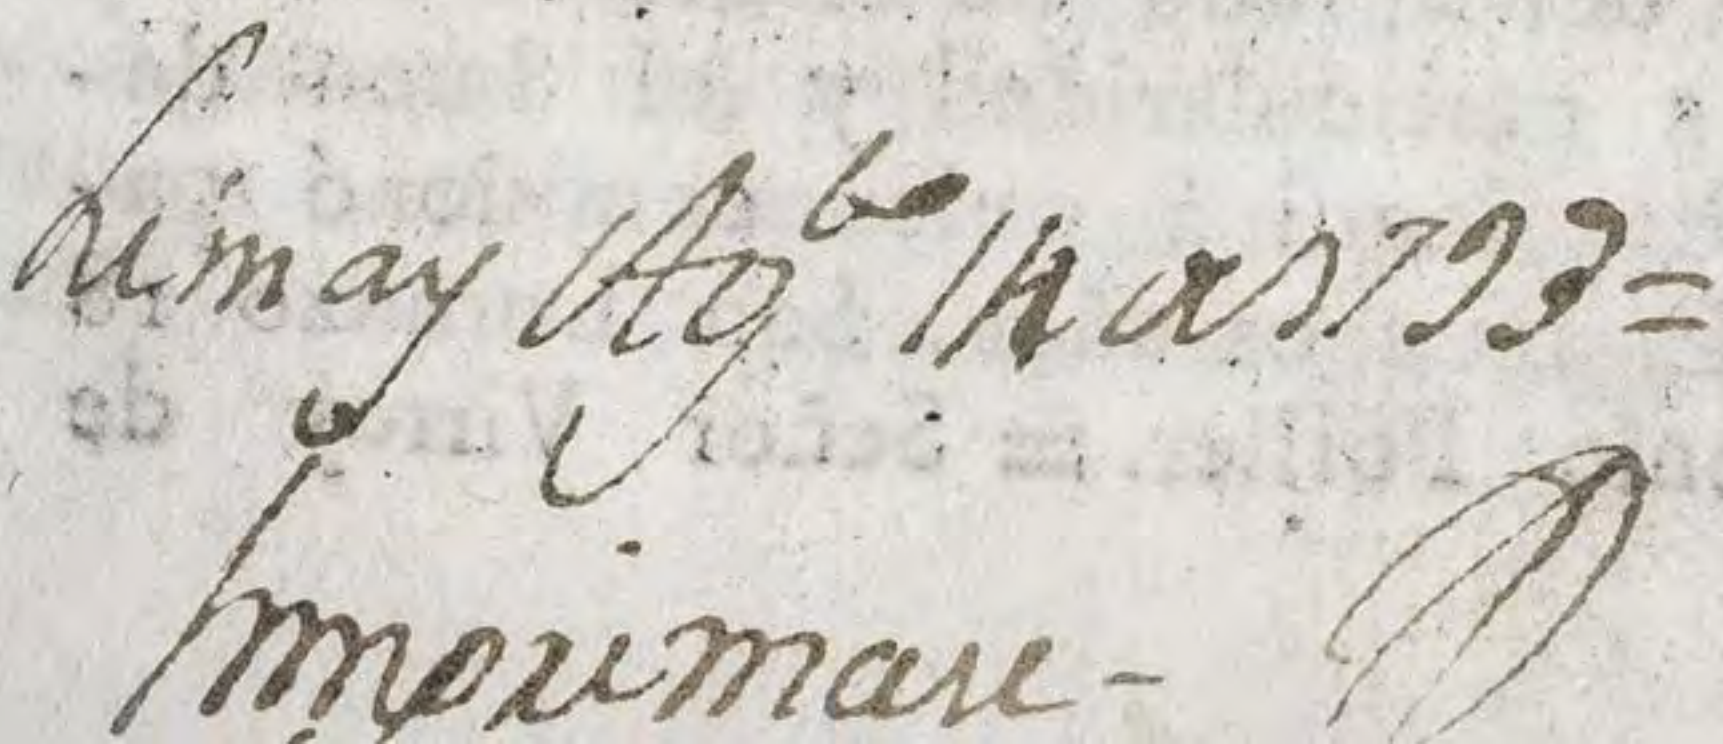 Lima y Ag^to 14 de 1793 =
Imprimase -